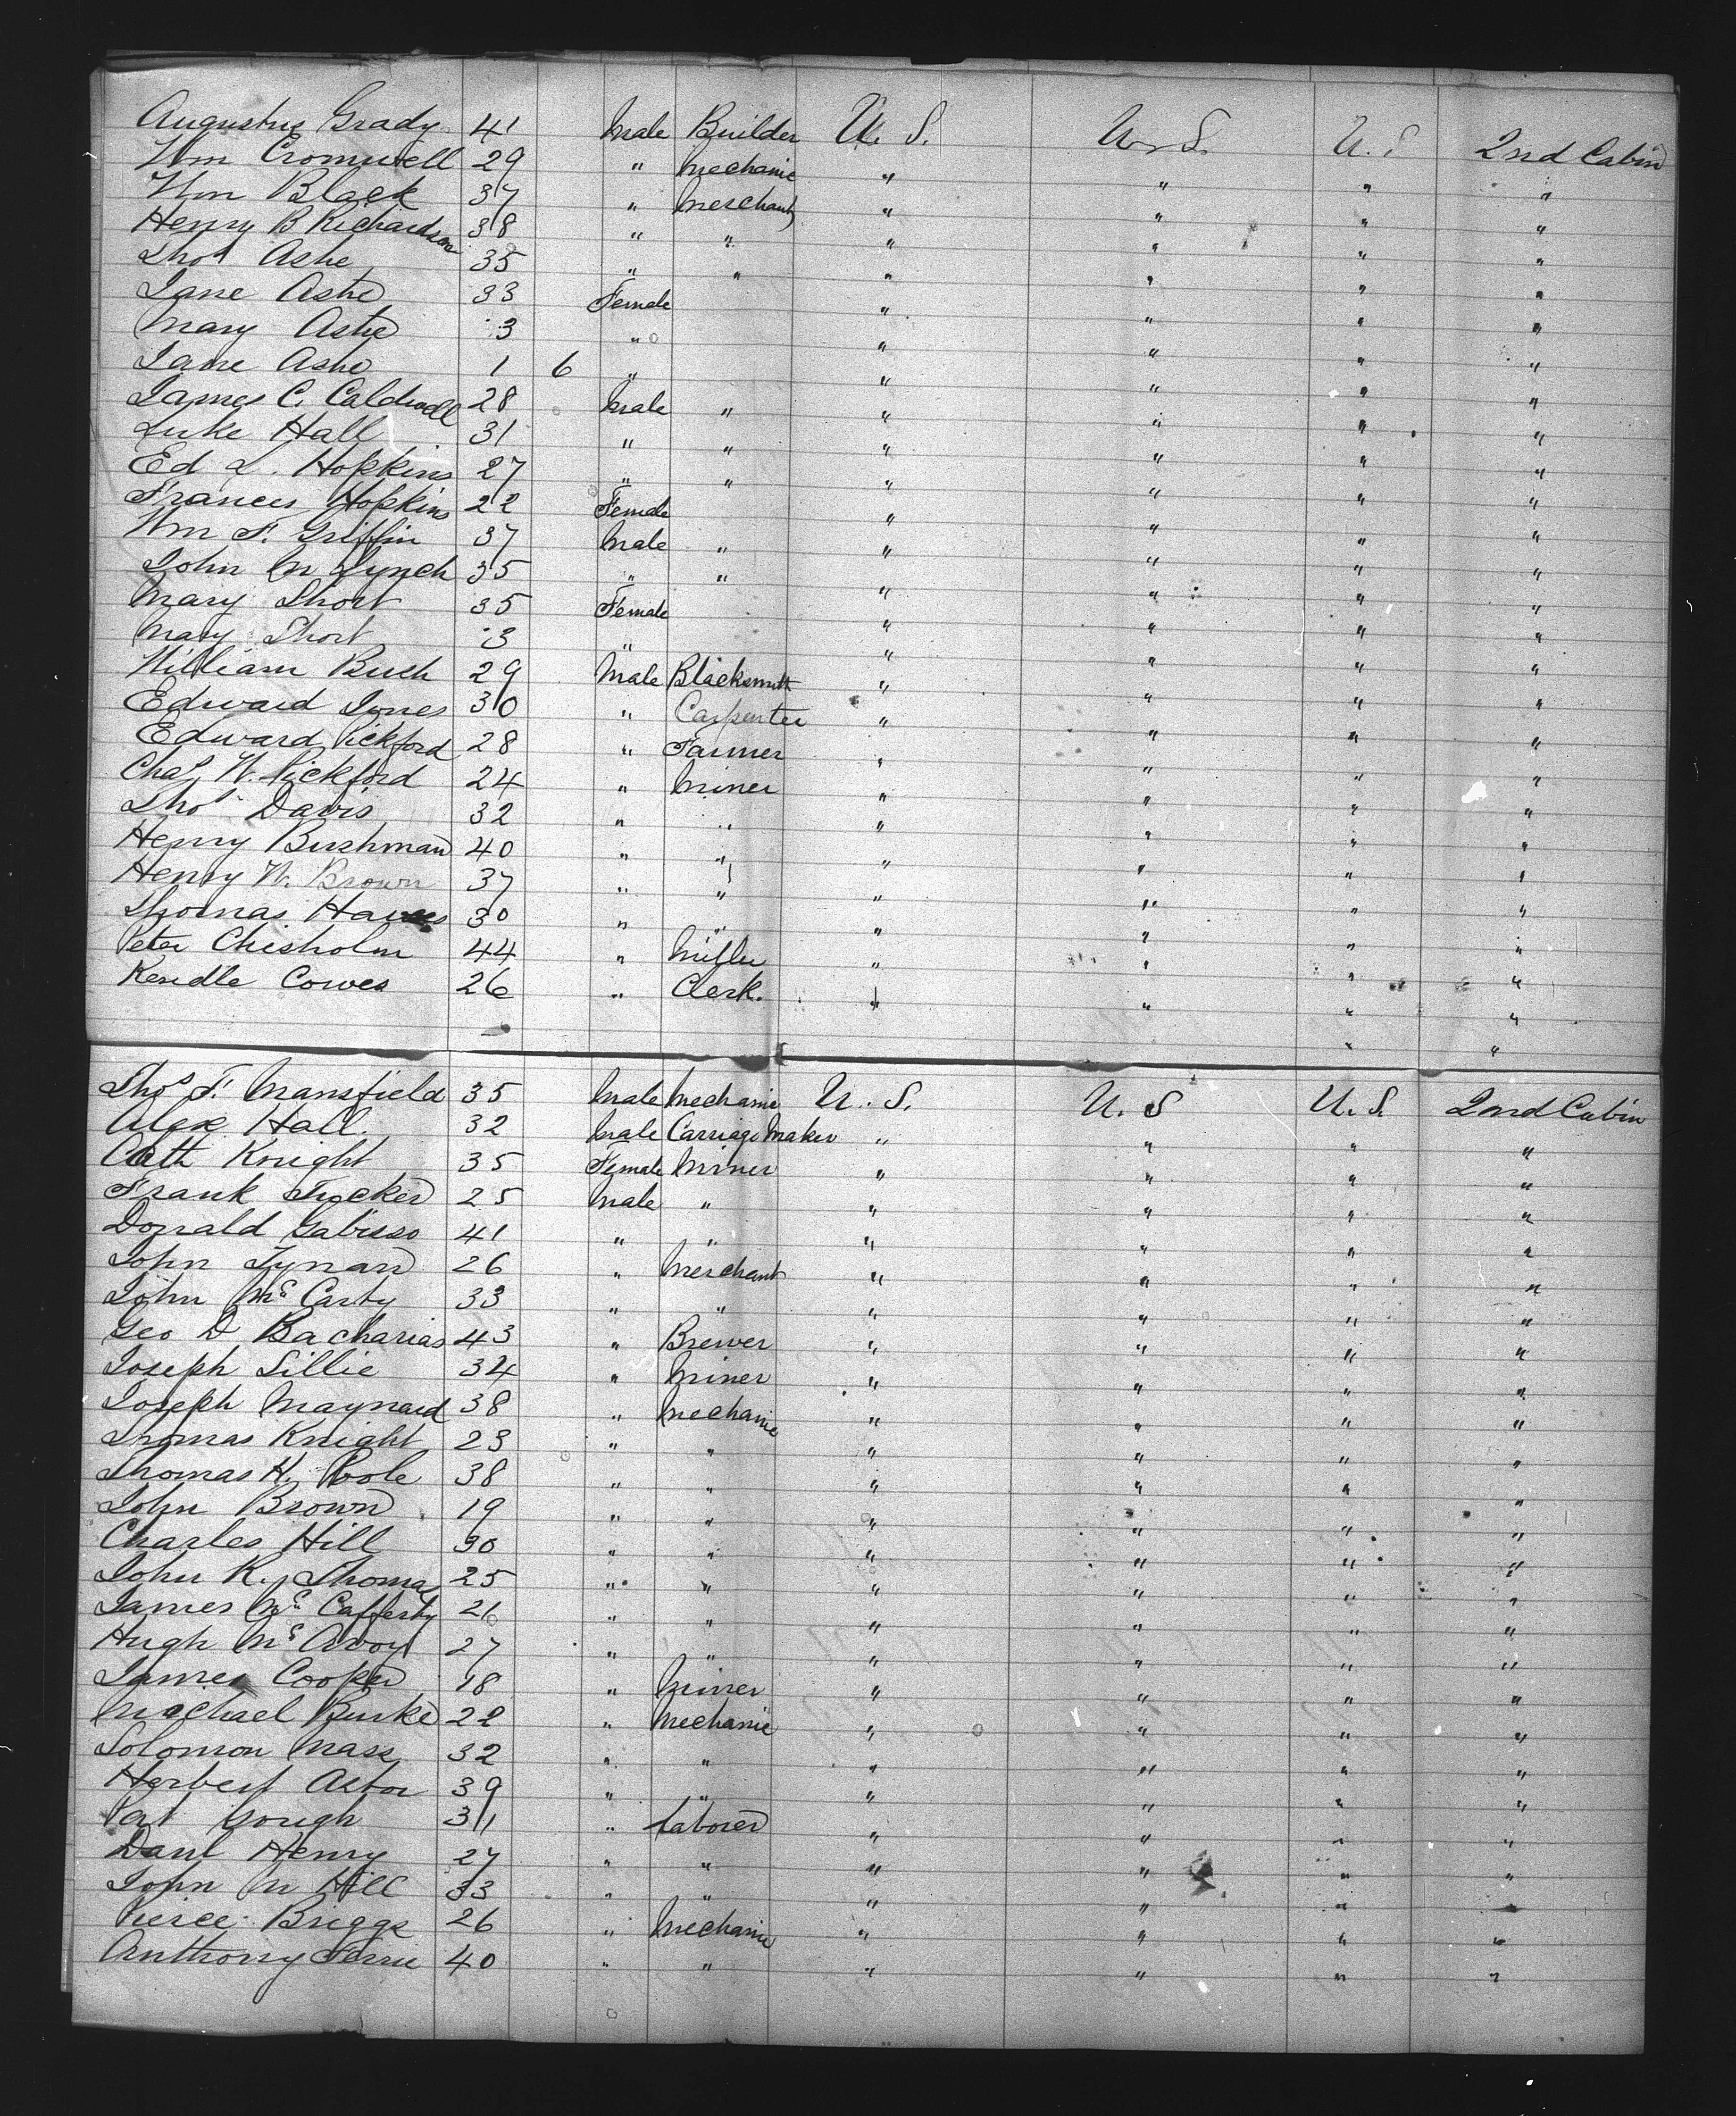 Augustus Grady 41 Male Builder U. S. U. S. U. S 2nd Cabin
Wm Cromwell 29 " Mechanic " " " "
Wm Black 37 " Merchant " " " "
Henry B Richardson 38 " " " " " "
Thos Ashe 35 " " " " " "
Jane Ashe 33 Female " " " "
Mary Ashe 3 " " " " "
Jane Ashe 1 6 " " " " "
James C. Caldwell 28 Male " " " " "
Luke Hall 31 " " " " " "
Ed L. Hopkins 27 " " " " " "
Frances Hopkins 22 Female " " " "
Wm F. Griffin 37 Male " " " " "
John M Lynch 35 " " " " " "
Mary Short 35 Female " " " "
Mary Short 3 " " " " "
William Bush 29 Male Blacksmith " " " "
Edward Jones 30 " Carpenter " " " "
Edward Pickford 28 " Farmer " " " "
Chas W. Pickford 24 " Miner " " " "
Thos Davis 32 " " " " " "
Henry Bushman 40 " " " " " "
Henry W. Brown 37 " " " " " "
Thomas 30 " " " " " "
Peter Chisholm 44 " Miller " " " "
Kendle Cowes 26 " Clerk. " " " "
" "
Thos F. Mansfield 35 Male Mechanic U. S. U. S U. S. 2nd Cabin
Alex Hall 32 Male Carriage Maker " " " "
Cath Knight 35 Female Miner " " " "
Frank Tucker 25 Male " " " " "
Donald Gabisso 41 " " " " " "
John Tynan 26 " Merchant " " " "
John McCarty 33 " " " " " "
Geo D Bacharias 43 " Brewer " " " "
Joseph Lillie 34 " Miner " " " "
Joseph Maynard 38 " Mechanic " " " "
Thomas Knight 23 " " " " " "
Thomas H. Poole 38 " " " " " "
John Brown 19 " " " " " "
Charles Hill 30 " " " " " "
John R. Thomas 25 " " " " " "
James McCafferty 26 " " " " " "
Hugh McAvoy 27 " " " " " "
James Cooper 18 " Miner " " " "
Michael Burke 22 " Mechanic " " " "
Solomon Mass 32 " " " " " "
Herbert Astor 39 " " " " " "
Pat Gough 31 " Laborer " " " "
Danl Henry 27 " " " " " "
John M Hill 33 " " " " " "
Pierce Briggs 26 " Mechanic " " " "
Anthony 40 " " " " " "